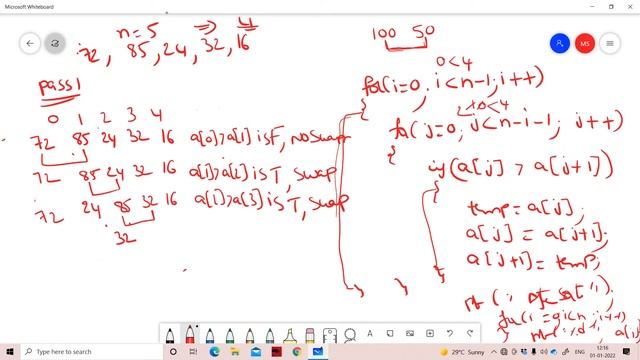 Microsoft Whiteboard
n=5 ⇒ 4
72, 85, 24, 32, 16
pass1
0 1 2 3 4
72 85 24 32 16 a[0]>a[1] is F, no swap
72 85 24 32 16 a[1]>a[2] is T, swap
72 24 85 32 16 a[1]>a[3] is T, swap
32
100 50
0<4
for(i=0; i<n-1; i++)
{
0<4
for(j=0; j<n-i-1; j++)
{
if(a[j] > a[j+1])
{
temp=a[j];
a[j] = a[j+1];
a[j+1]=temp;
} } }
MS
Type here to search
29°C Sunny
12:16
01-01-2022